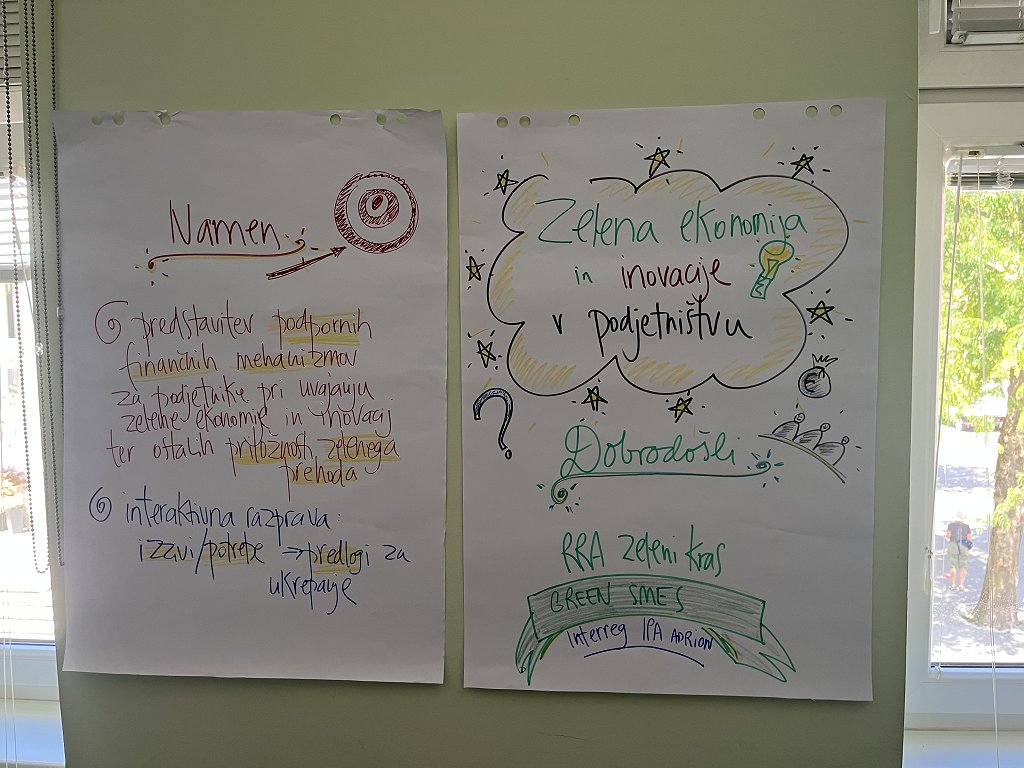 Namen
predstavitev podpornih
finančnih mehanizmov
za podjetnike pri uvajanju
zelene ekonomije in inovacij
ter ostalih priložnosti zelenega
prehoda
interaktivna razprava:
izzivi/potrebe → predlogi za
ukrepanje
Zelena ekonomija
in inovacije
v podjetništvu
?
Dobrodošli
RRA zeleni kras
GREEN SMES
Interreg IPA ADRION